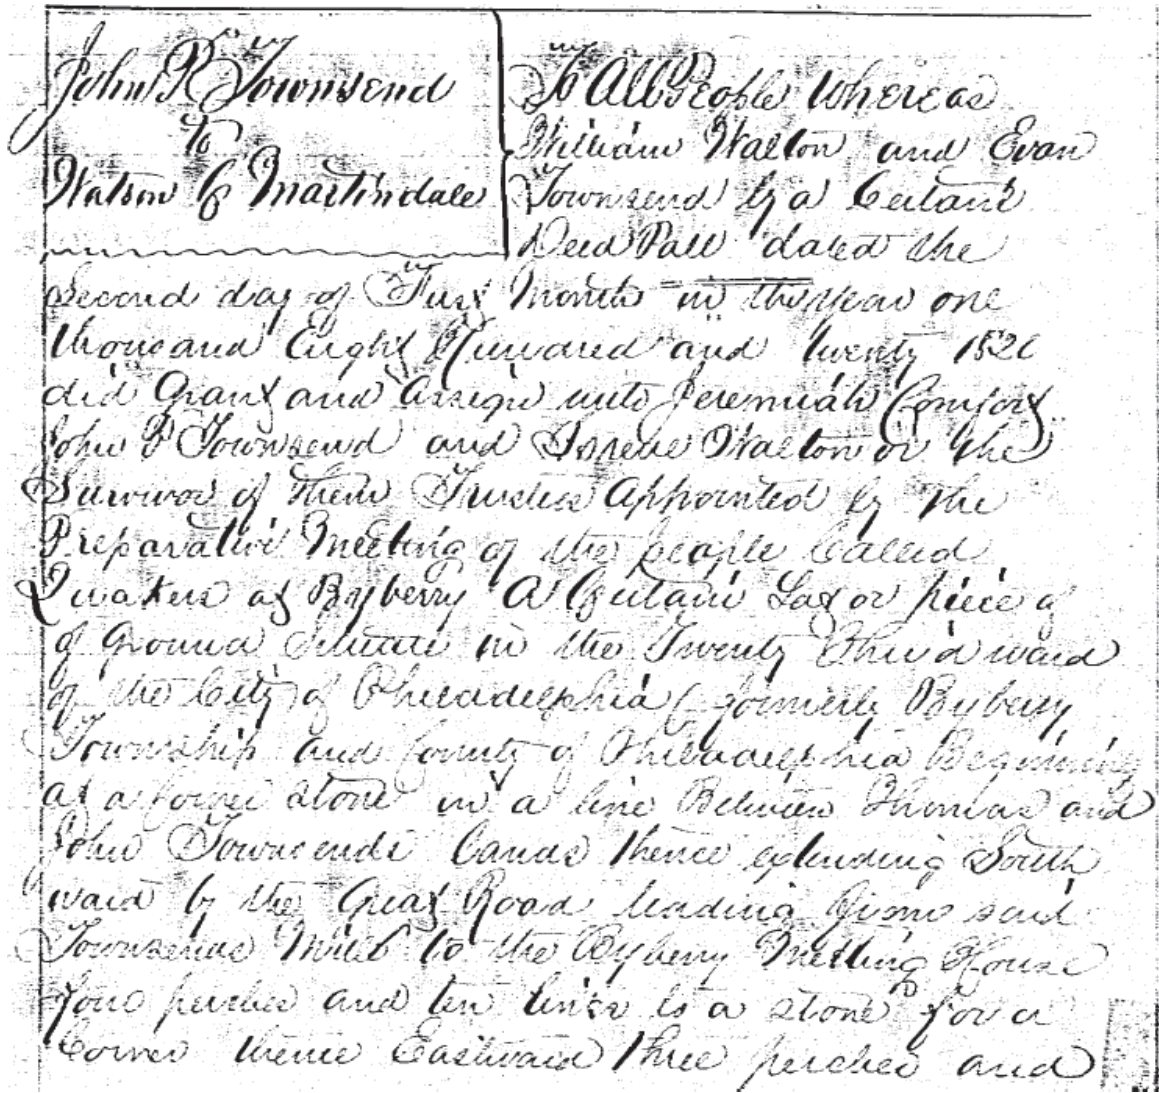 John P Townsend
to
Watson C Martindale
To All People Whereas
William Walton and Evan
Townsend by a Certain
Deed Poll dated the
Second day of First Month in the year one
thousand Eight Hundred and twenty 1820
did Grant and Assign unto Jeremiah Comfort
John P Townsend and Walton or the
Survivor of them Trustees Appointed by the
Preparative Meeting of the people Called
Quakers at Byberry A Certain Lot or piece of
of Ground Situate in the Twenty Third ward
of the City of Philadelphia (formerly Byberry
Township and County of Philadelphia Beginning
at a stone in a line Between Thomas and
John Townsends Lands thence extending South
ward by the Great Road leading from said
Townsends Mill to the Byberry Meeting House
four perches and ten links to a stone for a
Corner thence Eastward three perches and